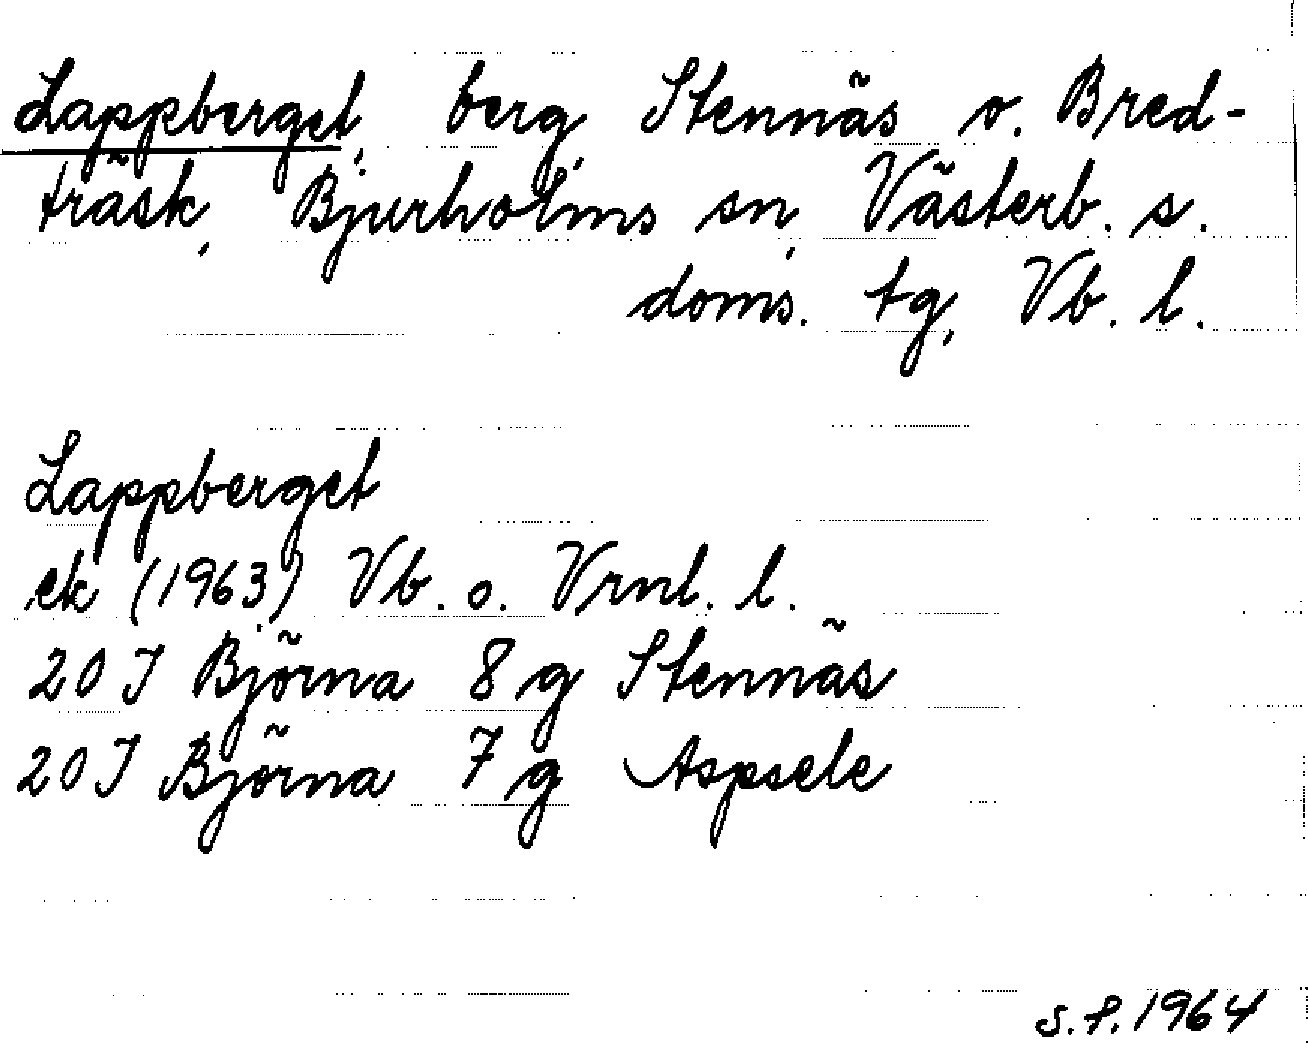 Lappberget, berg, Stennäs o. Bred-
träsk, Bjurholms sn, Västerb. s.
doms. tg, Vb. l.
Lappberget
ek (1963) Vb. o. Vrnl. l.
20 J Björna 8 g Stennäs
20 J Björna 7 g Aspsele
S.P. 1964